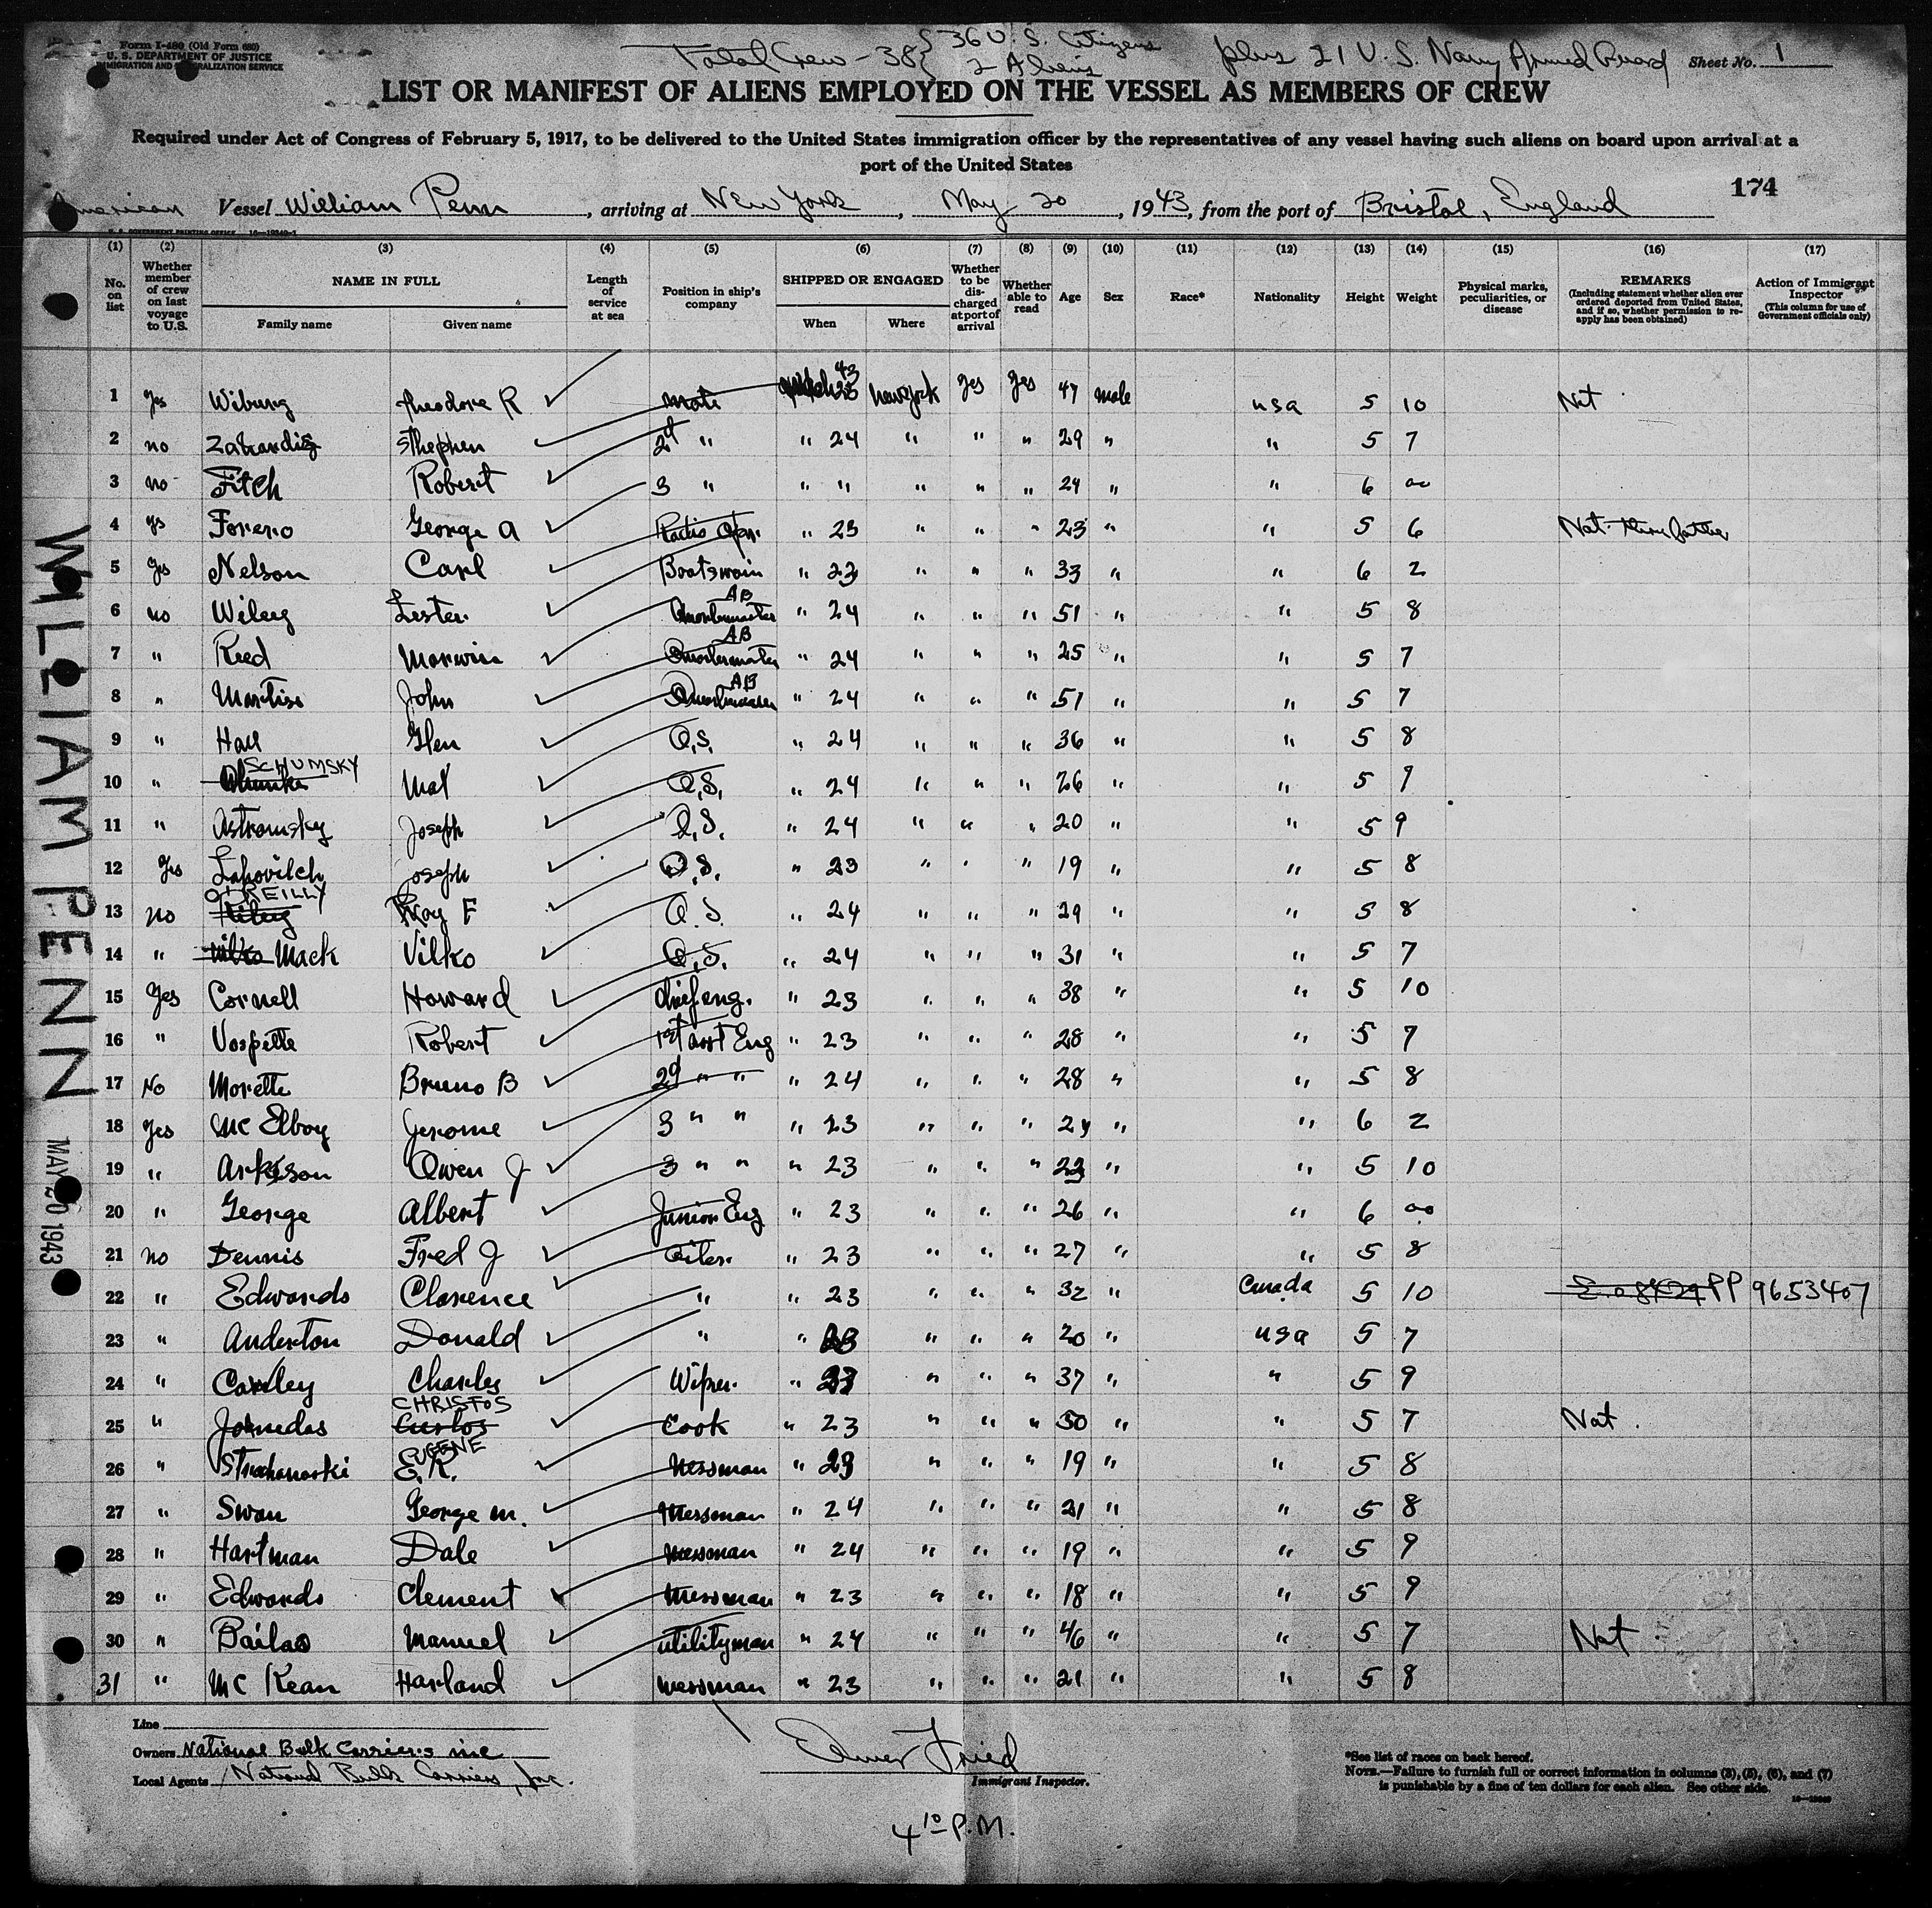 Form I-480 (Old Form 680)
U. S. DEPARTMENT OF JUSTICE
IMMIGRATION AND NATURALIZATION SERVICE
Total Crew - 38 { 36 U. S. Citizens
2 Aliens
plus 21 U. S. Navy Armed Guard
Sheet No. 1
LIST OR MANIFEST OF ALIENS EMPLOYED ON THE VESSEL AS MEMBERS OF CREW
Required under Act of Congress of February 5, 1917, to be delivered to the United States immigration officer by the representatives of any vessel having such aliens on board upon arrival at a
port of the United States
174
American Vessel William Penn, arriving at New York, May 20, 1943, from the port of Bristol, England
U. S. GOVERNMENT PRINTING OFFICE 16—19340-1
(1) (2) (3) (4) (5) (6) (7) (8) (9) (10) (11) (12) (13) (14) (15) (16) (17)
No. on list
Whether member of crew on last voyage to U.S.
NAME IN FULL
Family name
Given name
Length of service at sea
Position in ship's company
SHIPPED OR ENGAGED
When
Where
Whether to be discharged at port of arrival
Whether able to read
Age
Sex
Race*
Nationality
Height
Weight
Physical marks, peculiarities, or disease
REMARKS
(Including statement whether alien ever ordered deported from United States, and if so, whether permission to reapply has been obtained)
Action of Immigrant Inspector
(This column for use of Government officials only)
1 Yes Wiburg Theodore R Mate March 23 43 New York Yes Yes 47 male USA 5 10 Nat
2 no Sthephen 2d " " 24 " " " 29 " " 5 7
3 no Fitch Robert 3 " " " " " " 24 " " 6 00
4 yes Forero George A Radio Opr. " 23 " " " 23 " " 5 6 Nat
5 Yes Nelson Carl Boatswain " 23 " " " 33 " " 6 2
6 no Wiley Lester Quartermaster AB " 24 " " " 51 " " 5 8
7 " Reed Marwin Quartermaster AB " 24 " " " 25 " " 5 7
8 " Martiss John Quartermaster AB " 24 " " " 51 " " 5 7
9 " Hall Glen O.S. " 24 " " " 36 " " 5 8
10 " SCHUMSKY Max O.S. " 24 " " " 26 " " 5 9
11 " Astromsky Joseph O.S. " 24 " " " 20 " " 5 9
12 Yes Lahovitch Joseph O.S. " 23 " " " 19 " " 5 8
13 no O'REILLY Ray F O.S. " 24 " " " 29 " " 5 8
14 " Vilko Mack Vilko O.S. " 24 " " " 31 " " 5 7
15 Yes Cornell Howard Chief eng. " 23 " " " 38 " " 5 10
16 " Vospette Robert 1st asst Eng " 23 " " " 28 " " 5 7
17 No Morette Bruno B 2d " " " 24 " " " 28 " " 5 8
18 Yes Mc Elboy Jerome 3 " " " 23 " " " 24 " " 6 2
19 " Arkeson Owen J 3 " " " 23 " " " 23 " " 5 10
20 " George Albert Junior Eng " 23 " " " 26 " " 6 00
21 no Dennis Fred J Oiler " 23 " " " 27 " " 5 8
22 " Edwards Clarence " " 23 " " " 32 " Canada 5 10 PP 9653407
23 " Anderton Donald " " 23 " " " 20 " USA 5 7
24 " Caxley Charles Wiper " 23 " " " 37 " " 5 9
25 " CHRISTOS Cook " 23 " " " 50 " " 5 7 Nat.
26 " E.R. EUGENE Messman " 23 " " " 19 " " 5 8
27 " Swan George M. Messman " 24 " " " 21 " " 5 8
28 " Hartman Dale Messman " 24 " " " 19 " " 5 9
29 " Edwards Clement Messman " 23 " " " 18 " " 5 9
30 " Bailao Manuel utilityman " 24 " " " 46 " " 5 7 Nat
31 " Mc Kean Harland messman " 23 " " " 21 " " 5 8
WILLIAM PENN
MAY 20 1943
Line
Owners National Bulk Carriers inc
Local Agents National Bulk Carriers, Inc.
Elmer Fried
Immigrant Inspector.
4 10 P.M.
*See list of races on back hereof.
NOTE.—Failure to furnish full or correct information in columns (3), (5), (6), and (7)
is punishable by a fine of ten dollars for each alien. See other side.